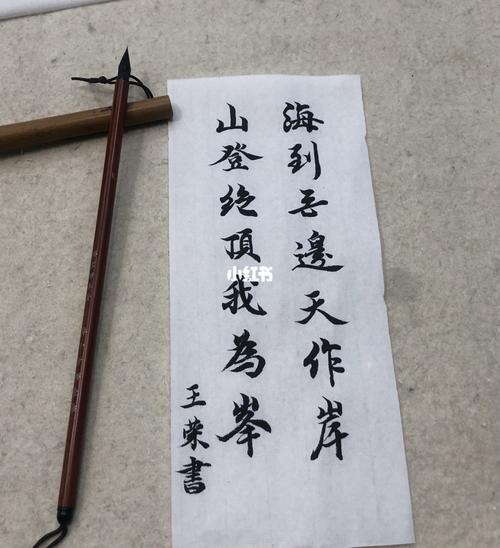 海到无邊天作岸
山登绝頂我為峯
王荣書
小红书